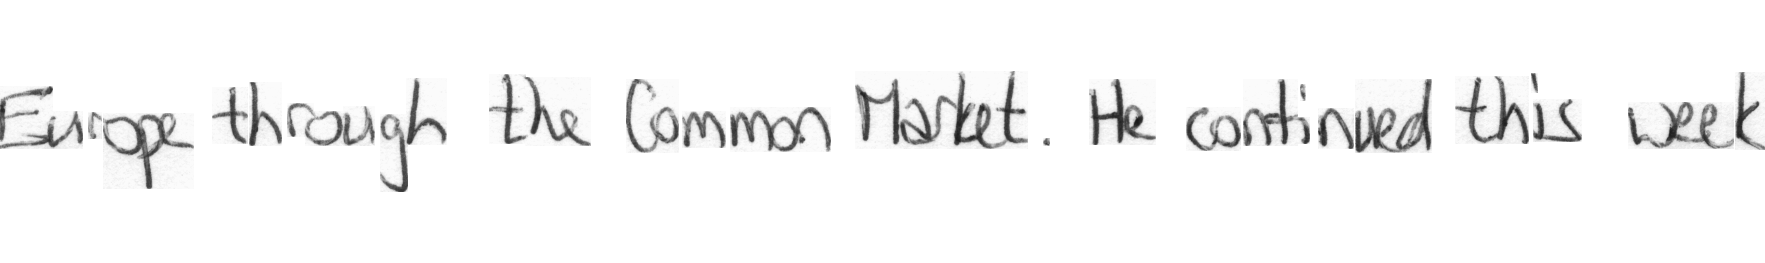 Europe through the Common Market. He continued this week